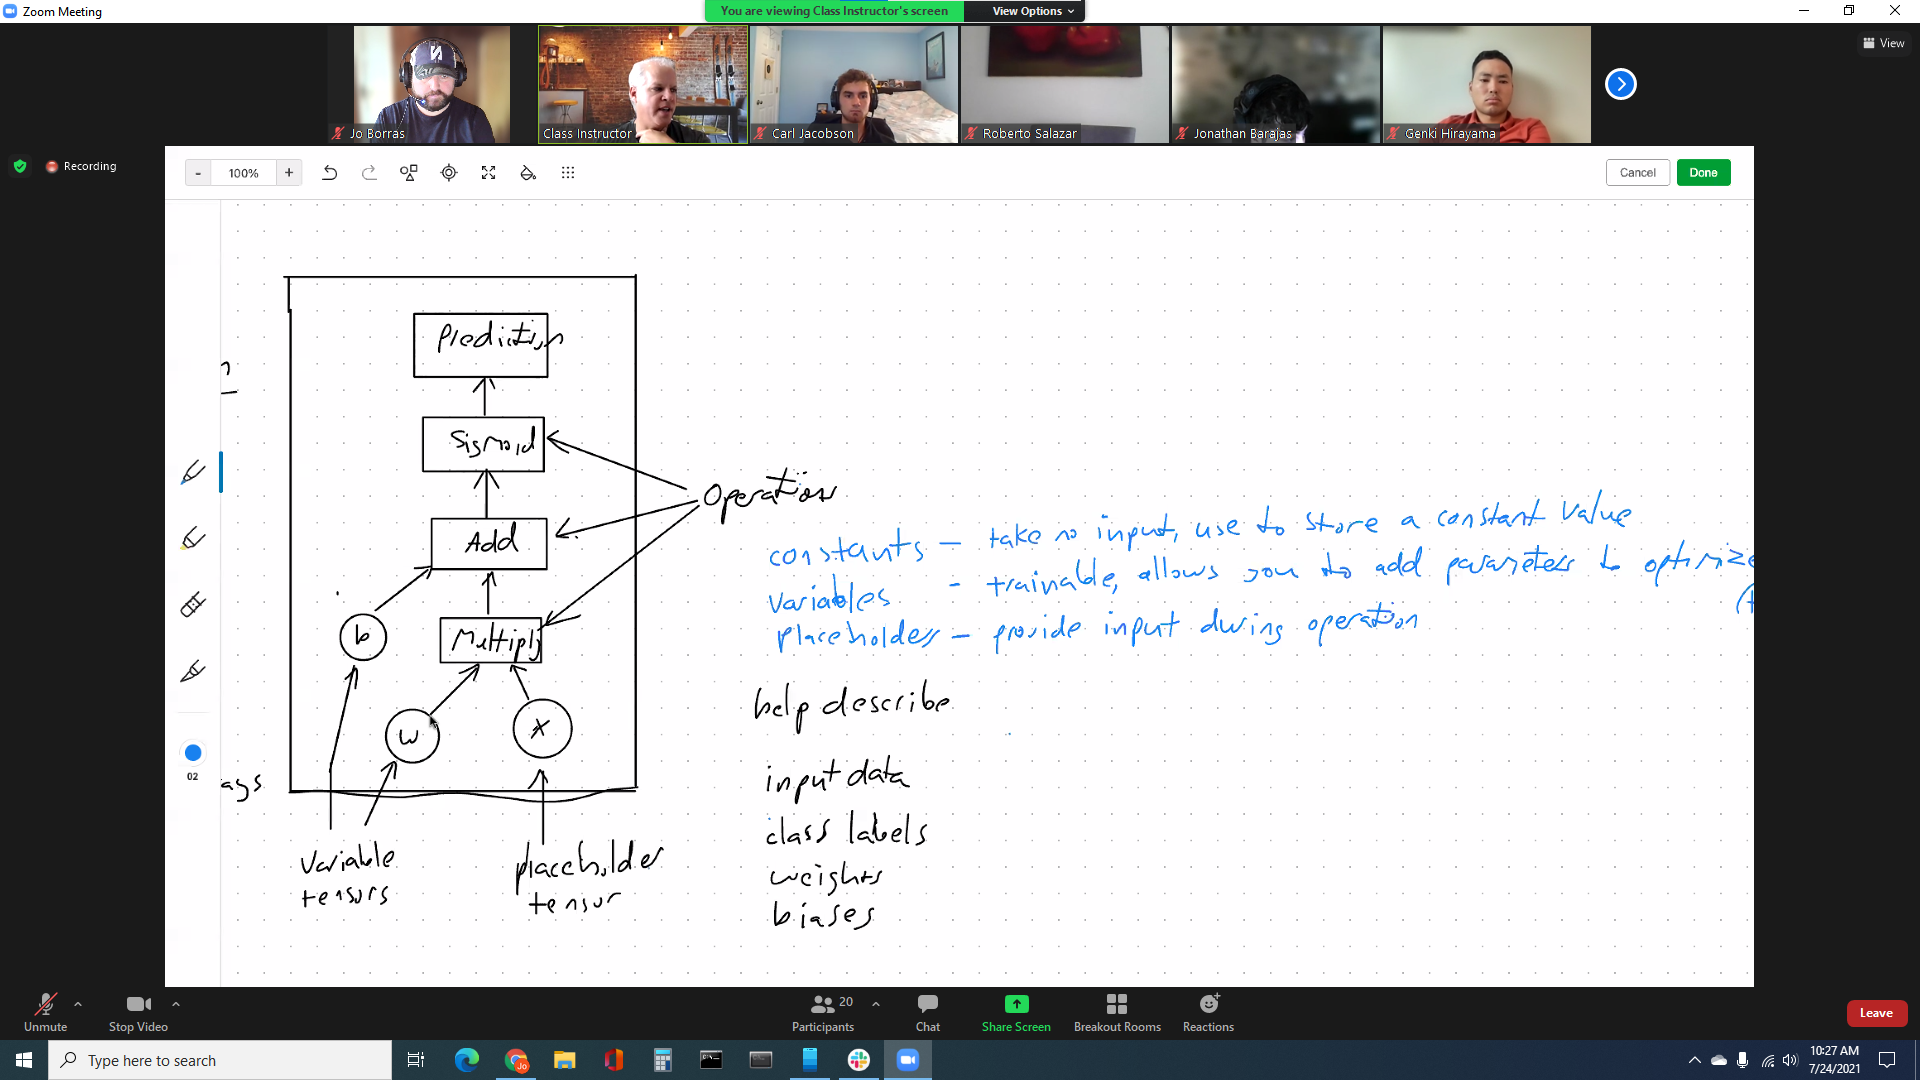 Zoom Meeting
You are viewing Class Instructor's screen
View Options
View
Jo Borras
Class Instructor
Carl Jacobson
Roberto Salazar
Jonathan Barajas
Genki Hirayama
Recording
-
100%
+
Cancel
Done
Prediction
Sigmoid
Operations
Add
b
Multiply
w
x
variable
tensors
placeholder
tensor
ags
constants – take no input, use to store a constant value
variables – trainable, allows you to add parameters to optimize
placeholders – provide input during operation
help describe
input data
class labels
weights
biases
02
Unmute
Stop Video
20
Participants
Chat
Share Screen
Breakout Rooms
Reactions
Leave
Type here to search
10:27 AM
7/24/2021